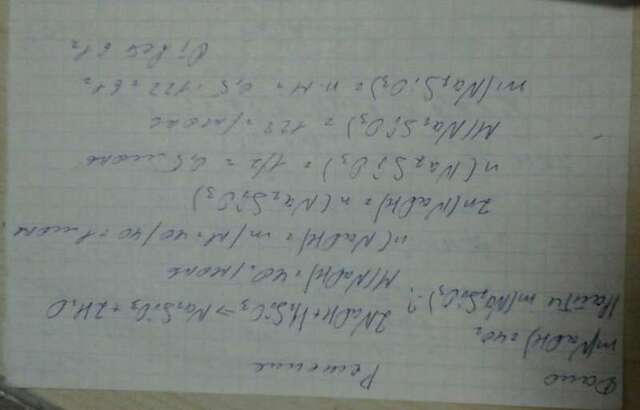 Дано
Решение
m(NaOH)=40г
Найти m(Na2SiO3)-?
2NaOH+H2SiO3→Na2SiO3+2H2O
M(NaOH)=40г/моль
n(NaOH)=m/M=40/40=1моль
2n(NaOH)=n(Na2SiO3)
n(Na2SiO3)=1/2=0,5моль
M(Na2SiO3)=122г/моль
m(Na2SiO3)=n·M=0,5·122=61г
Ответ 61г